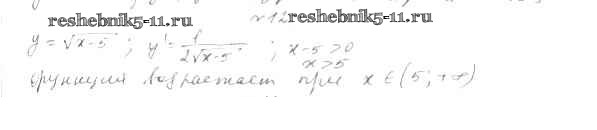 №12
reshebnik5-11.ru reshebnik5-11.ru
y = √x-5 ; y' = 1/2√x-5 ; x-5>0
x>5
функция возрастает при x ∈ (5; +∞)